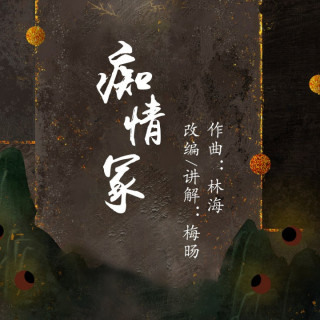 痴情冢
作曲：林海
改编/讲解：梅旸